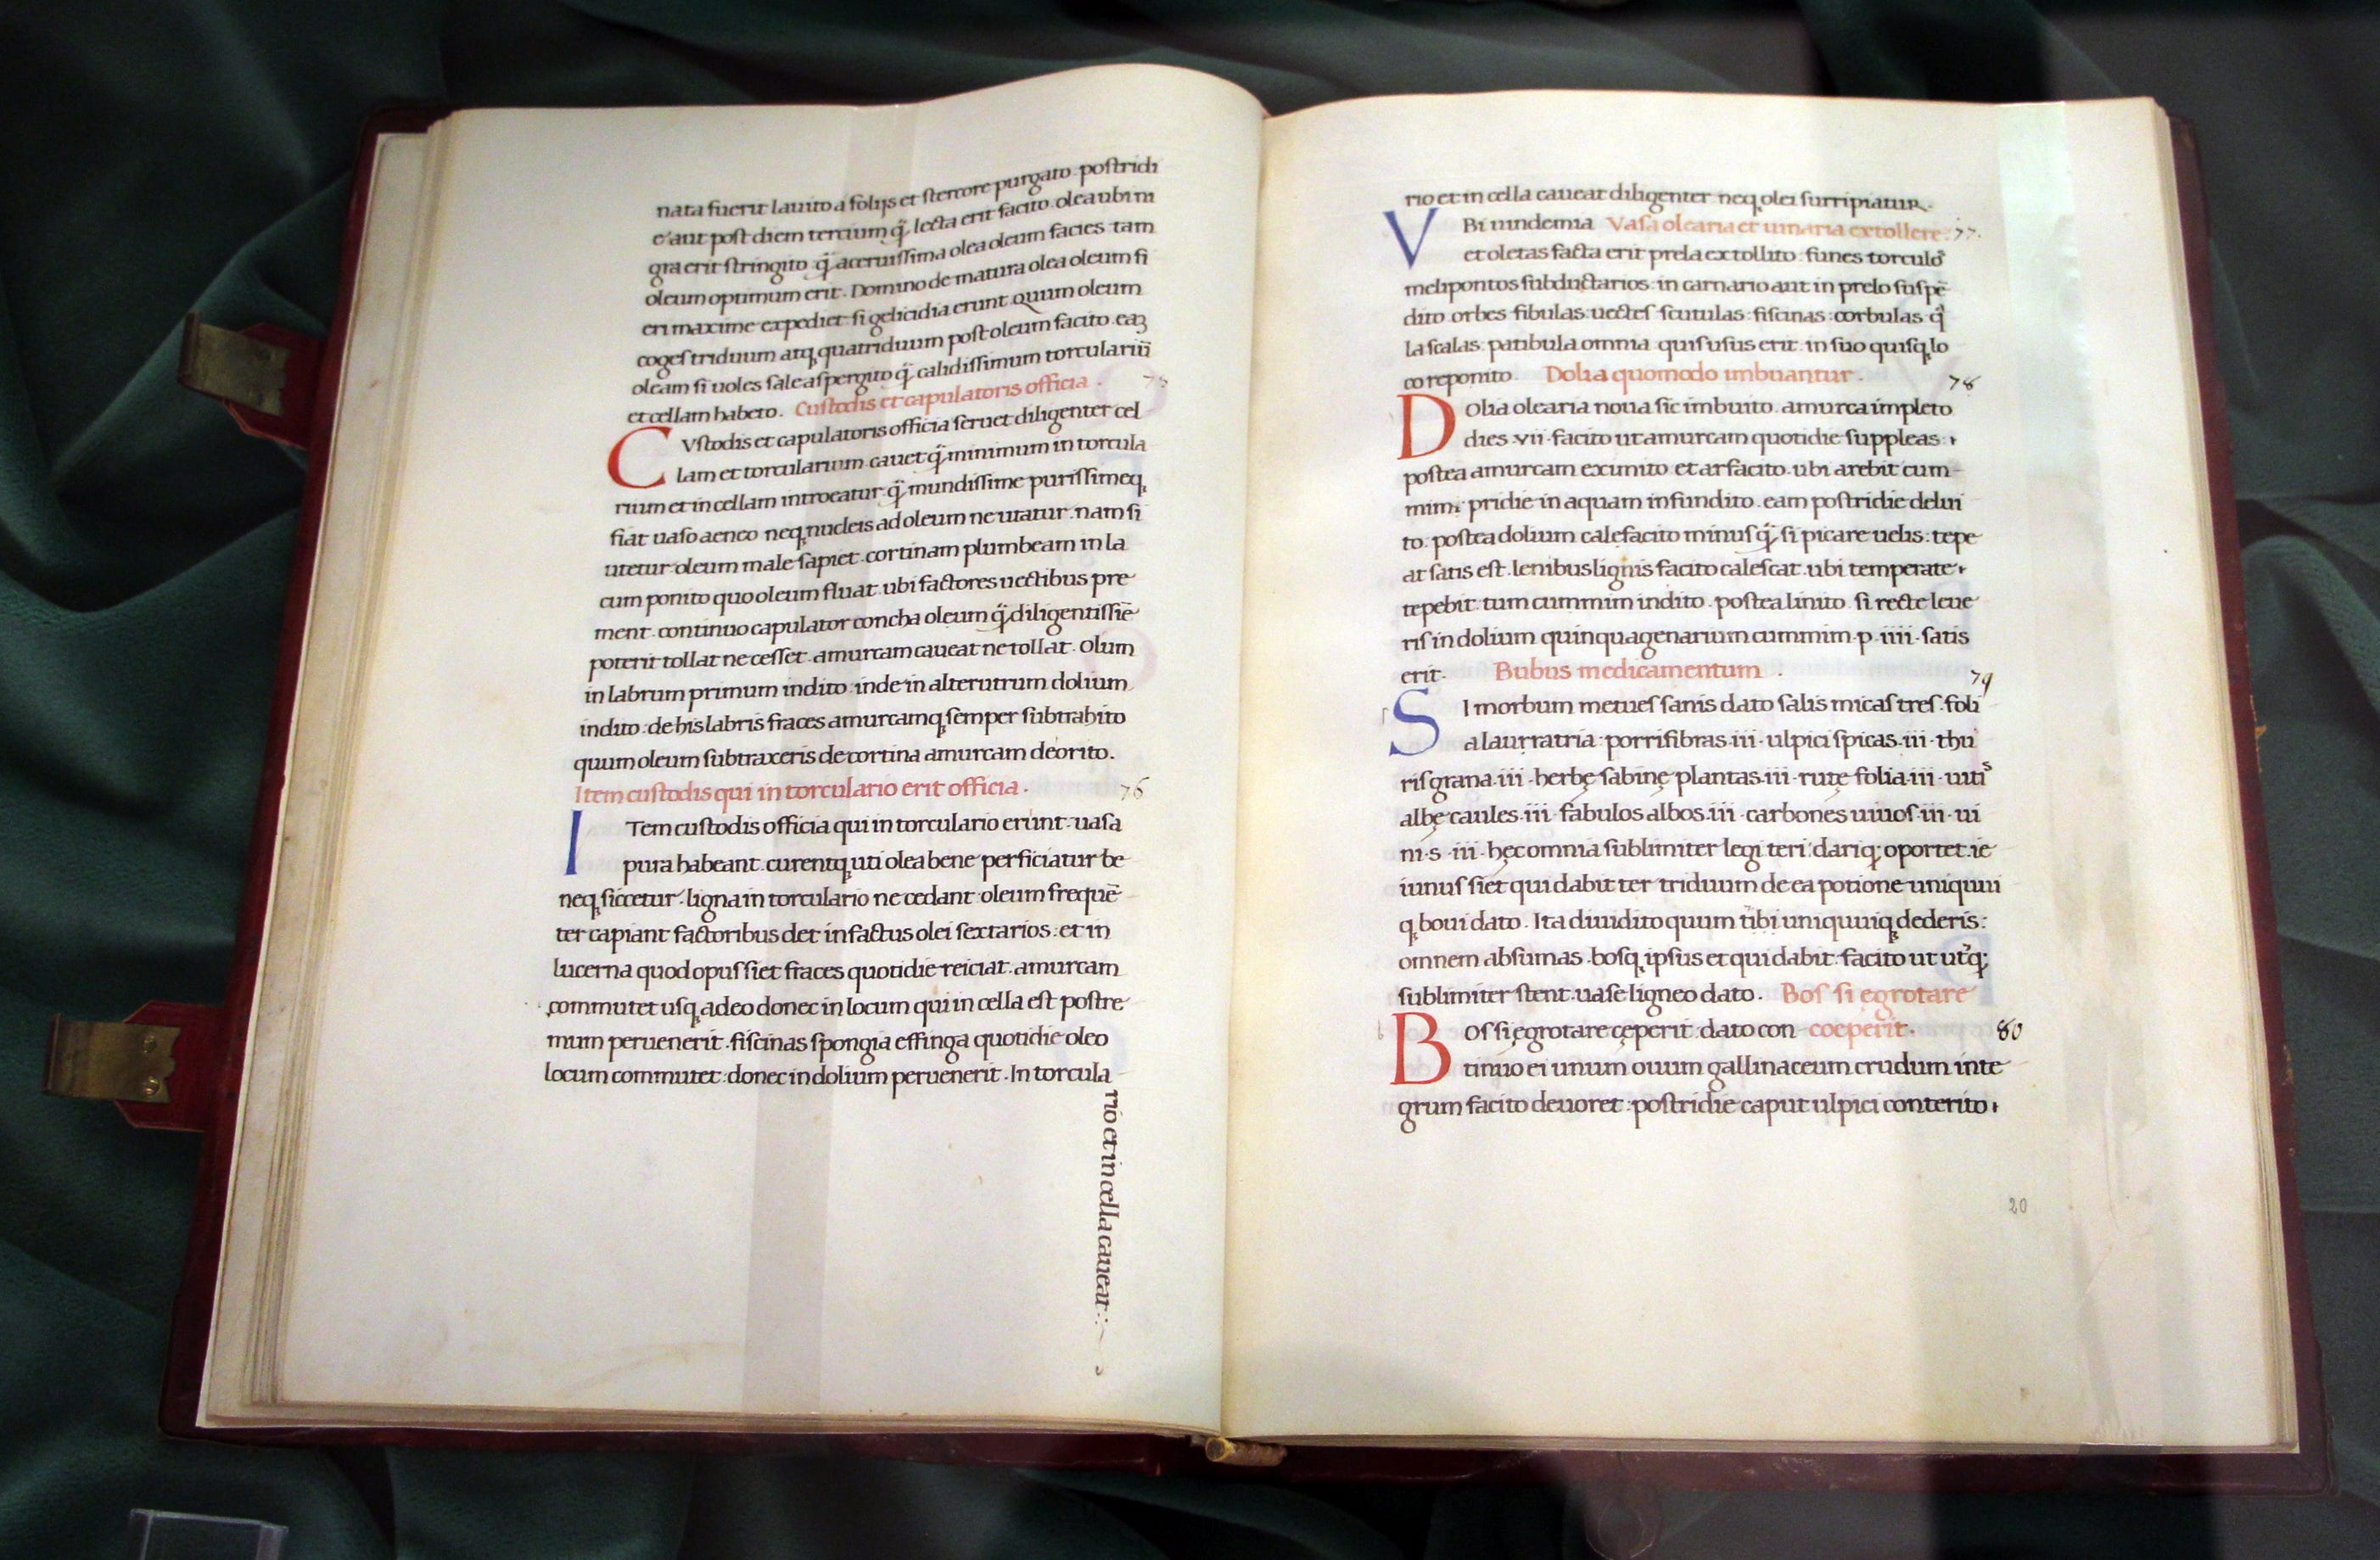 nata fuerit lauito a folijs et stercore purgato. postridi
e aut post diem tercium q̃ lecta erit facito. olea ubi ni
gra erit stringito. q̃ aceruissima olea oleum facies tam
oleum optimum erit. Domino de matura olea oleum fi
eri maxime expediet. si gelicidia erunt quum oleum
coges triduum atq; quatriduum post oleum facito. eaꝫ
oleam si uoles sale aspergito q̃ calidissimum torculariũ
et cellam habeto. Custodis et capulatoris officia.
CVstodis et capulatoris officia seruet diligenter cel
lam et torcularium. cauet q̃ minimum in torcula
rium et in cellam introeatur. q̃ mundissime purissimeq;
fiat uaso aeneo neq; nucleis ad oleum ne utatur. nam si
utetur oleum male sapiet. cortinam plumbeam in la
cum ponito quo oleum fluat. ubi factores uectibus pre
ment. continuo capulator concha oleum q̃ diligentissiẽ
poterit tollat ne cesset. amurcam caueat ne tollat. Olum
in labrum primum indito. inde in alterutrum dolium
indito. de his labris fraces amurcamq; semper subtrahito
quum oleum subtraxeris de cortina amurcam deorito.
Item custodis qui in torculario erit officia. 76
ITem custodis officia qui in torculario erunt. uasa
pura habeant. curentq; uti olea bene perficiatur be
neq; siccetur. ligna in torculario ne cedant. oleum frequẽ
ter capiant. factoribus det in factus olei sextarios: et in
lucerna quod opus siet fraces quotidie reiciat. amurcam
commutet usq; adeo donec in locum qui in cella est postre
mum peruenerit. fiscinas spongia effinga quotidie oleo
locum commutet: donec in dolium peruenerit. In torcula
rio et in cella caueat:
rio et in cella caueat diligenter neq; olei surripiatur.
VBi uindemia Vasa olearia et uinaria extollere. 77.
et oletas facta erit prela extollito. funes torculo᷒
melipontos subductarios. in carnario aut in prelo suspẽ
dito. orbes fibulas uectes scutulas fiscinas: corbulas q̃
la scalas. patibula omnia quis usus erit. in suo quisq; lo
co reponito. Dolia quomodo imbuantur. 78
DOlia olearia noua sic imbuito. amurca impleto
dies. vii. facito ut amurcam quotidie suppleas.
postea amurcam eximito et arfacito. ubi arebit cum-
mim: pridie in aquam infundito. eam postridie delui
to. postea dolium calefacito minus q̃ si picare uelis: tepe
at satis est. lenibus lignis facito calescat. ubi temperate
tepebit. tum cummim indito. postea linito. si recte leue
ris in dolium quinquagenarium cummim. p. iiii. satis
erit. Bubus medicamentum. 79
SI morbum metues sanis dato salis micas tres. foli
a laurratria: porri fibras. iii. ulpici spicas. iii. thu
ris grana. iii. herbę sabinę plantas. iii. rutę folia. iii. uitis
albę caules. iii. fabulos albos. iii. carbones uiuos. iii. ui
ni. s. iii. hęc omnia sublimiter legi teri dariq; oportet. ie
iunus siet qui dabit ter triduum de ea potione uniquui
q; boui dato. Ita diuidito quum tibi uniquuiq; dederis:
omnem absumas. bosq; ipsus et qui dabit: facito ut utq̃;
sublimiter stent. uase ligneo dato. Bos si egrotare
BOs si ęgrotare cęperit. dato con coeperit. 80
tinuo ei unum ouum gallinaceum crudum inte
grum facito deuoret: postridie caput ulpici conterito.
20